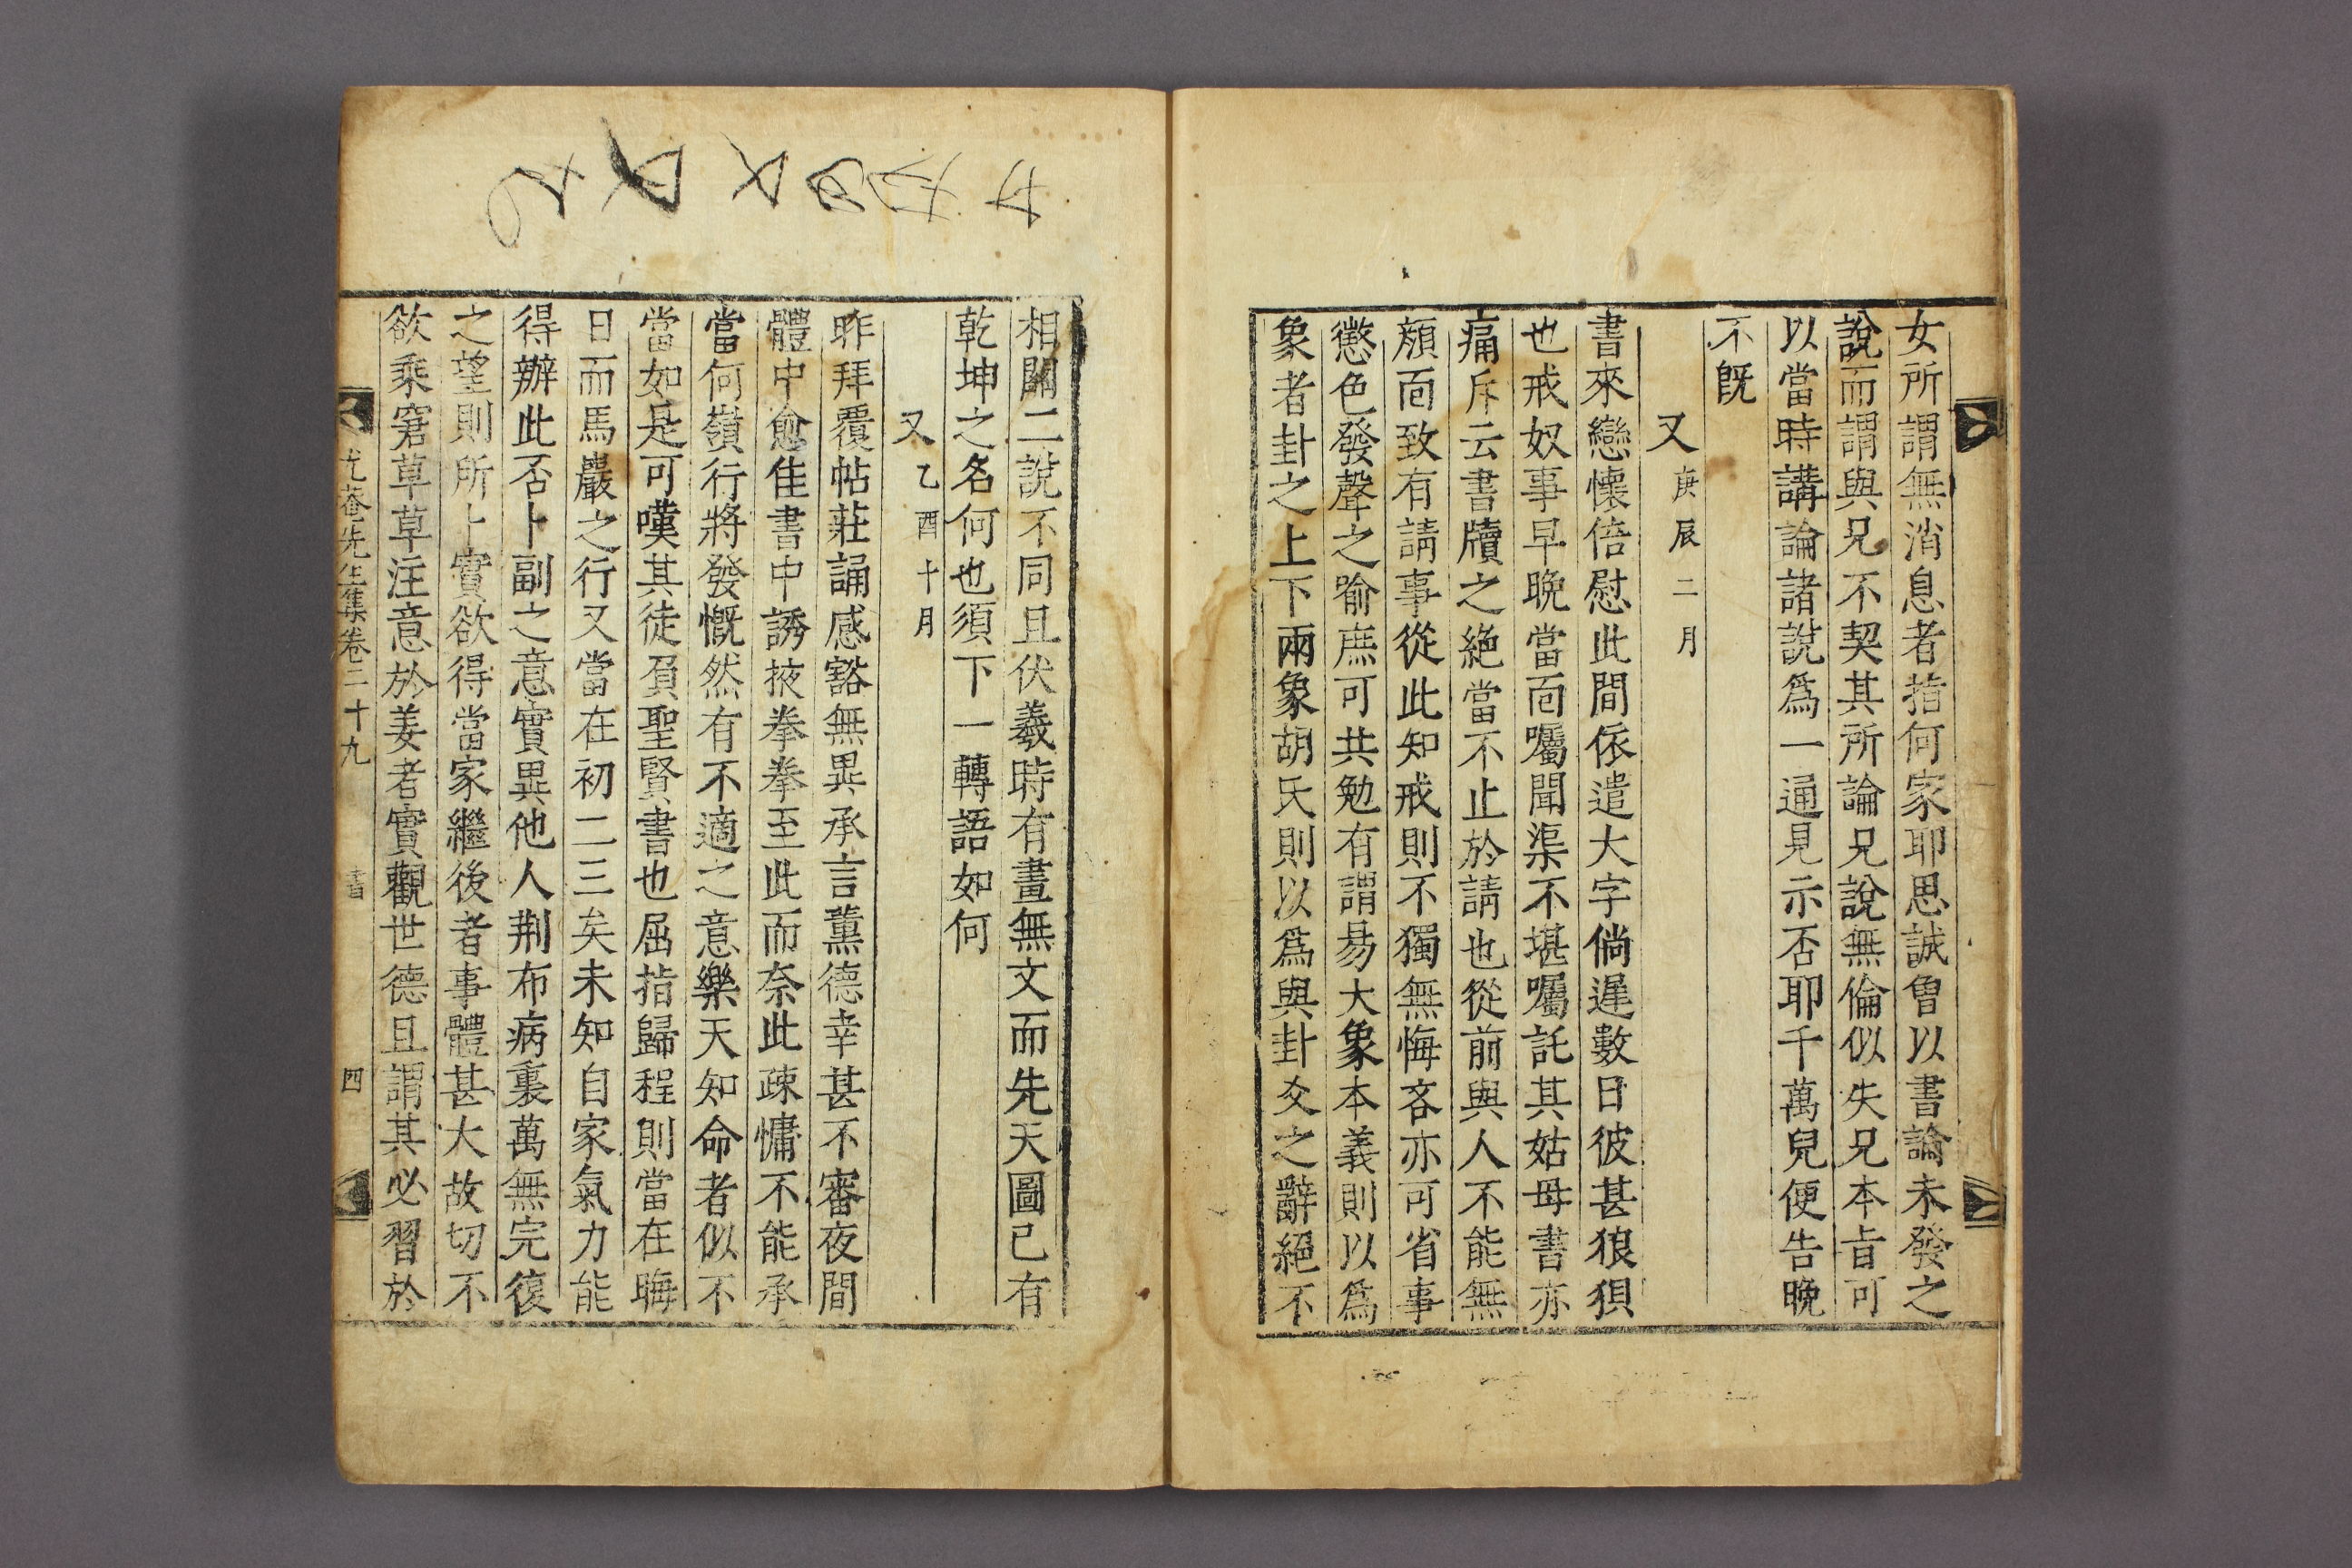 女所謂無消息者指何家耶思誠曾以書論未發之
說而謂與兄不契其所論兄說無倫似失兄本旨可
以當時講論諸說爲一通見示否耶千萬兒便告晚
不旣
又 庚辰二月
書來戀懷倍慰此間依遣大字倘遲數日彼甚狼狽
也戒奴事早晩當面囑聞渠不堪囑託其姑母書亦
痛斥云書牘之絶當不止於請也從前與人不能無
顔面致有請事從此知戒則不獨無悔吝亦可省事
懲色發聲之喩庶可共勉有謂易大象本義則以爲
象者卦之上下兩象胡氏則以爲與卦爻之辭絕不
相關二說不同且伏羲時有畫無文而先天圖已有
乾坤之名何也須下一轉語如何
又 乙酉十月
昨拜覆帖莊誦感豁無異承言薰德幸甚不審夜間
體中愈佳書中誘掖拳拳至此而奈此疎慵不能承
當何嶺行將發慨然有不適之意樂天知命者似不
當如是可嘆其徒負聖賢書也屈指歸程則當在晦
日而馬巖之行又當在初二三矣未知自家氣力能
得辦此否卜副之意實異他人荆布病裏萬無完復
之望則所卜實欲得當家繼後者事體甚大故切不
欲乘窘草草注意於姜者實觀世德且謂其必習於
尤菴先生集卷二十九 書 四